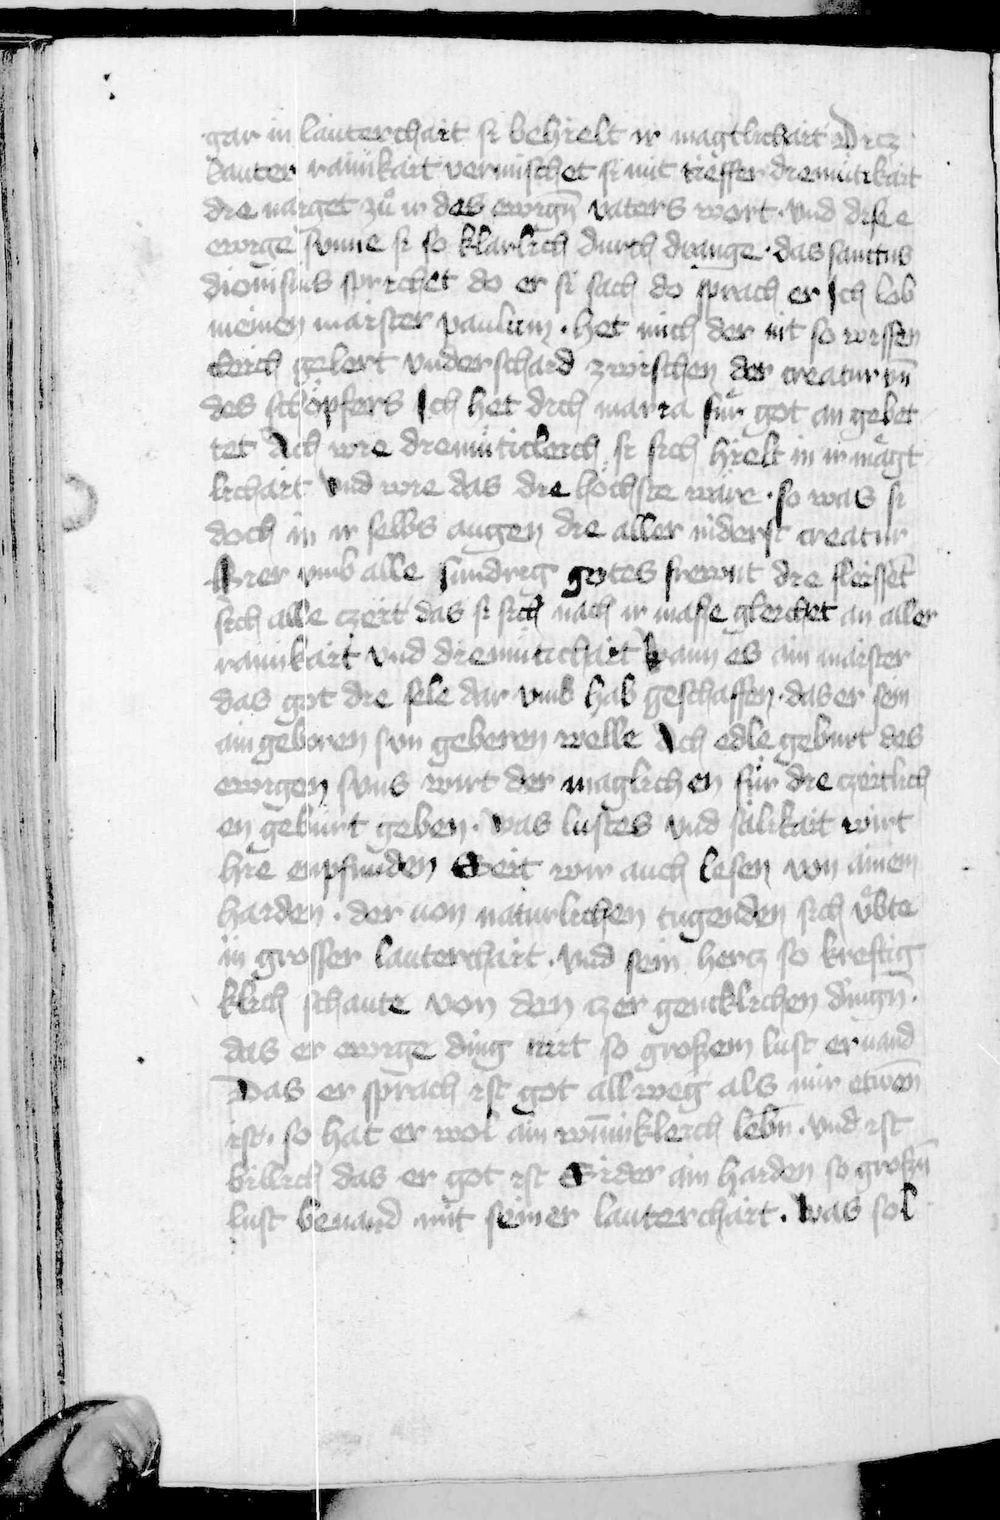 gar in lauterchait si behielt ir magtlichait Dicz
lauter rainikait vermischet si mit tieffer diemütikait
die naiget zuͦ ir des ewign̄ vaters wort · vnd dise
ewige sunne si so klarlich durch drange · das sanctus
dionisius sprichet do er si sach do sprach er Ich lob
meinen maister paulum · het mich der nit so wissen
leich gelert vnderschaid zwischen der creatur vn̄
des schöpfers Ich het dich maria für got an gebet
tet Ach wie diemüticleich si sich hielt in ir mägt
lichait Vnd wie das die höchste ware · so was si
doch in ir selbs augen die aller niderst creatur
Hier vmb alle sundrig gotes frewnt die fleisset
sich alle czeit das si sich nach ir masse gleichet an aller
rainikait vnd diemütichait Wann es ain maister
das got die sele dar vmb hab geschaffen · das er sein
aingeboren sun geberen welle Ach edle geburt des
ewigen suns wirt der maglichen für die czeitlich
en geburt geben · Was lustes vnd sälikait wirt
hie enpfinden Seit wir auch lesen von ainem
haiden · der von naturlichen tugenden sich vͤbte
in grosser lauterchait · vnd sein hercz so kreftig
klich schaute von den czergencklichen dingn̄ ·
das er ewige ding mit so grossem lust ervand
Das er sprach ist got allweg als mir etwen̄
ist · so hat er wol ain wun̄niklich lebn̄ · vnd ist
billich das er got ist Sider ain haiden so grossn̄
lust bevand mit seiner lauterchait · Was sol